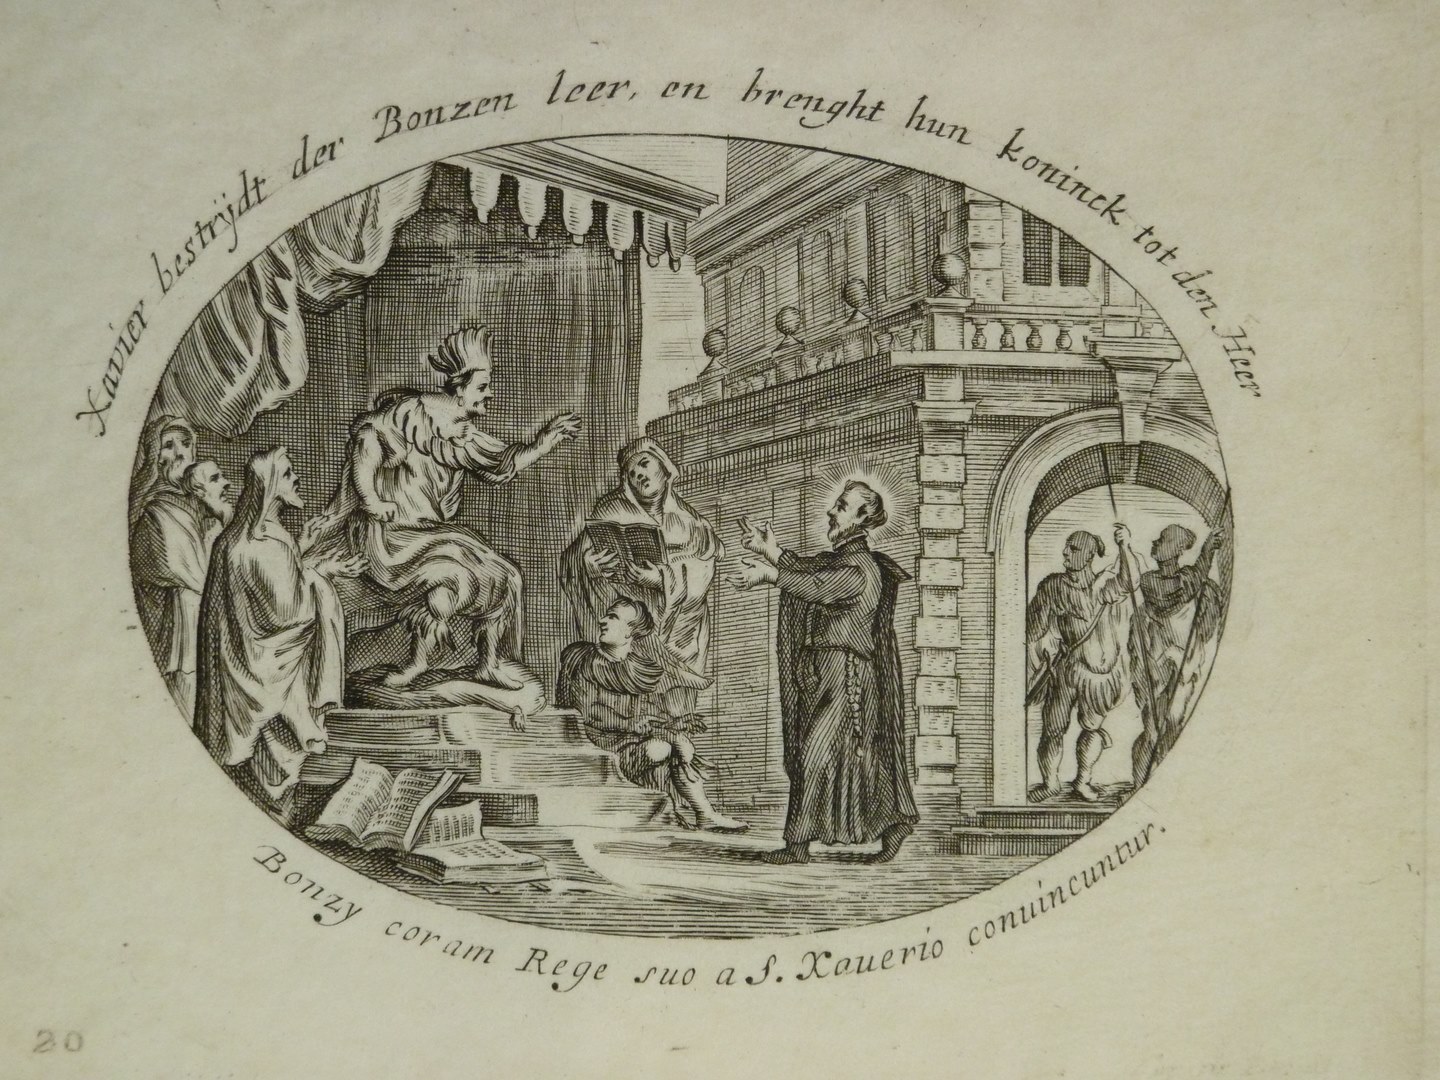 Xavier bestrÿdt der Bonzen leer, en brenght hun koninck tot den Heer
Bonzy coram Rege suo a S. Xauerio conuincuntur.
20